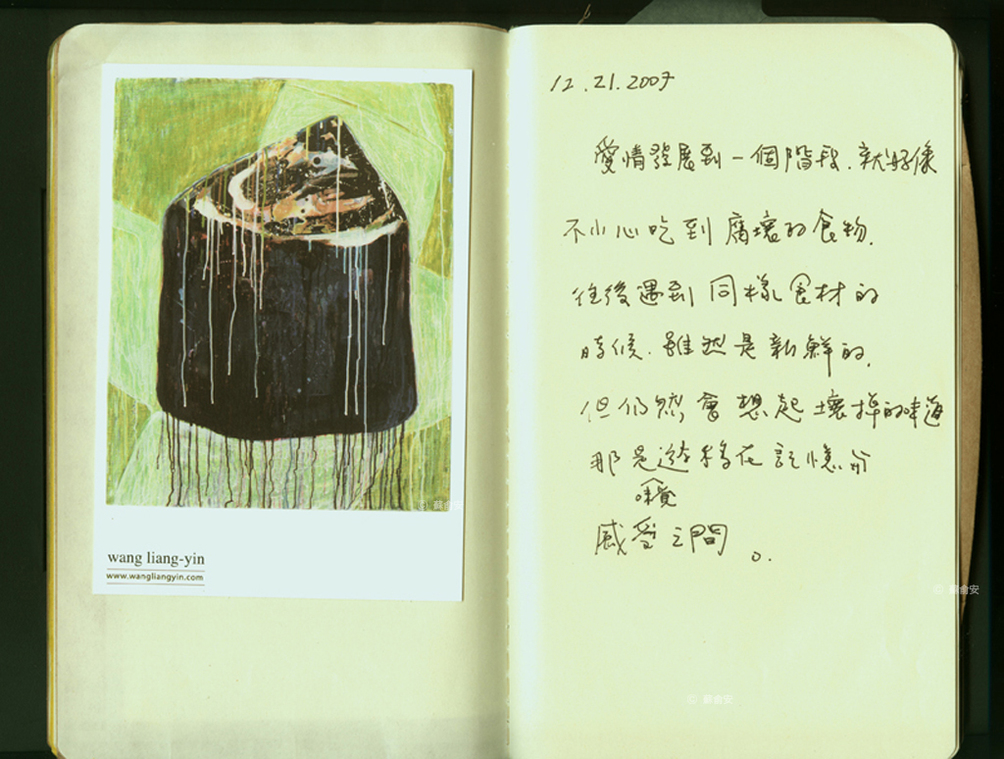 wang liang-yin
www.wangliangyin.com
12.21.2007
愛情發展到一個階段.就好像
不小心吃到腐壞的食物.
往後遇到同樣食材的
時候.雖然是新鮮的.
但仍然會想起壞掉的味道
那是遊移在記憶與
味覺
感受之間。
© 蘇俞安
© 蘇俞安